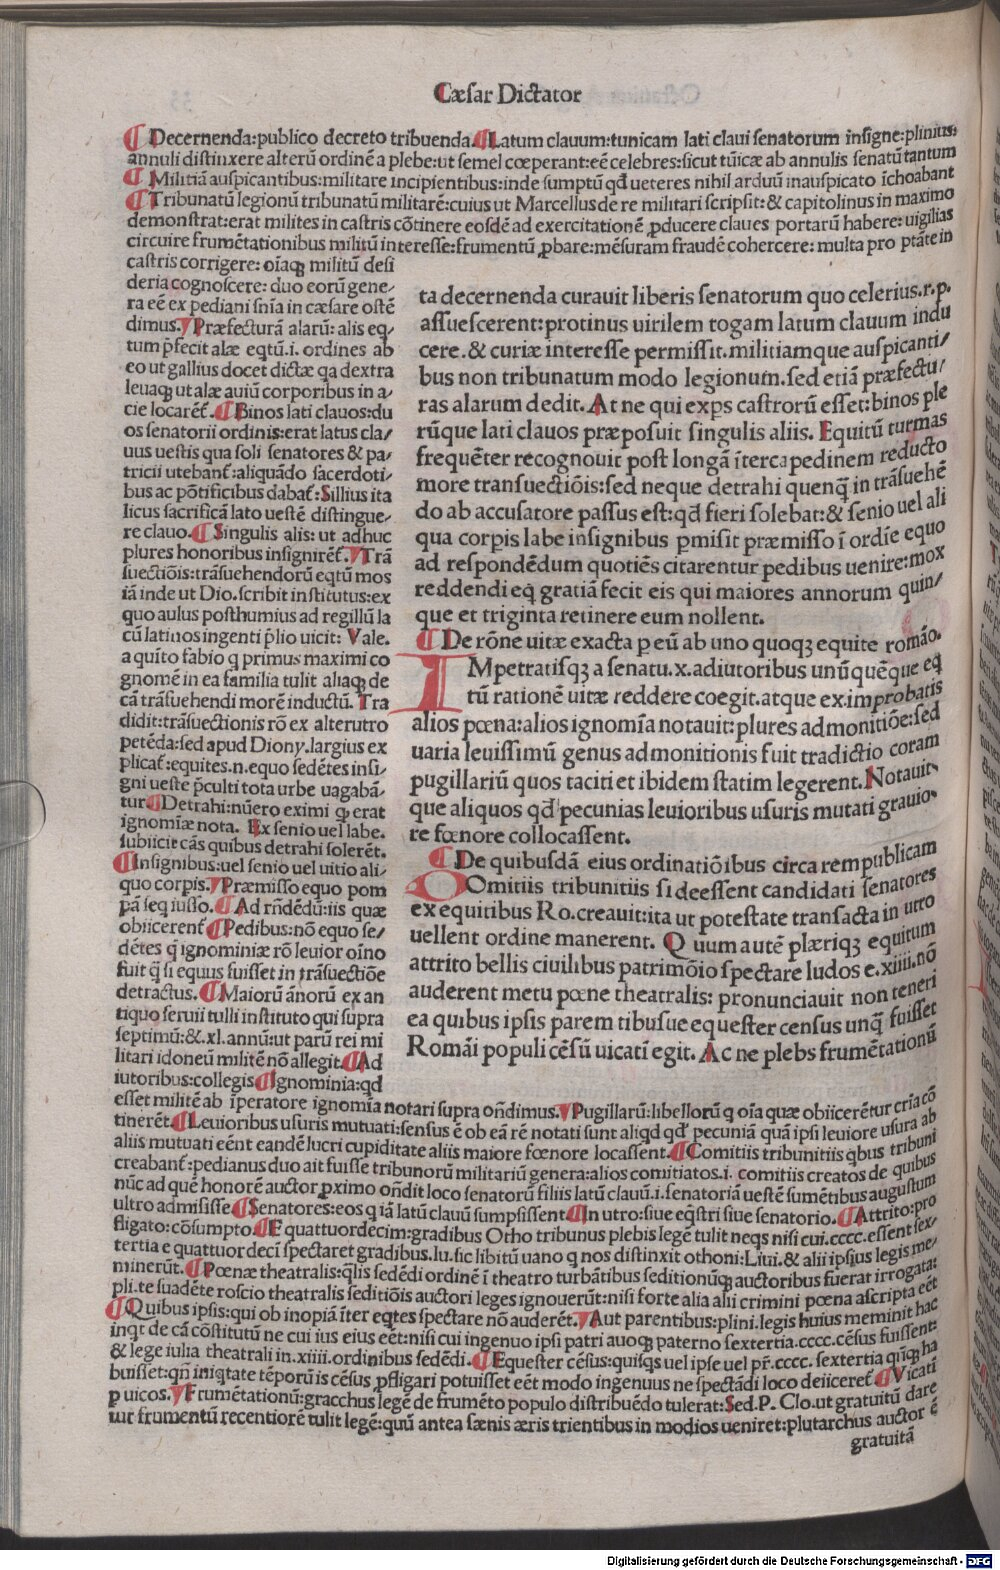 Cæſar Dictator
¶ Decernenda:publico decreto tribuenda.¶ Latum clauum:tunicam lati claui ſenatorum inſigne:plinius:
annuli diſtinxere alterū ordinē a plebe:ut ſemel cœperant:eē celebres:ſicut tūicæ ab annulis ſenatū tantum
¶ Militiā auſpicantibus:militare incipientibus:inde ſumptū qđ ueteres nihil arduū inauſpicato īchoabant
¶ Tribunatū legionū tribunatū militarē:cuius ut Marcellus de re militari ſcripſit:& capitolinus in maximo
demonſtrat:erat milites in caſtris cōtinere eoſdē ad exercitationē ꝓducere claues portarū habere:uigilias
circuire frumētationibus militū intereſſe:frumentū ꝓbare:mēſuram fraudē cohercere: multa pro ptāte in
caſtris corrigere: oīaqꝫ militū deſi
deria cognoſcere: duo eorū gene/
ra eē ex pediani ſnīa in cæſare oſtē
dimus.¶ Præfecturā alarū: alis eq/
tum p̄fecit alæ eqtū.i. ordines ab
eo ut gallius docet dictæ qa dextra
leuaqꝫ ut alæ auiū corporibus in a/
cie locarēt̄.¶ Binos lati clauos:du
os ſenatorii ordinis:erat latus cla/
uus ueſtis qua ſoli ſenatores & pa/
tricii utebant̄:aliquādo ſacerdoti/
bus ac pōtificibus dabat̄:Sillius ita
licus ſacrificā lato ueſtē diſtingue/
re clauo.¶ Singulis alis: ut adhuc
plures honoribus inſignirēt̄.¶ Trā
ſuectiōis:trāſuehendorū eqtū mos
iā inde ut Dio.ſcribit inſtitutus:ex
quo aulus poſthumius ad regillū la
cū latinos ingenti p̄lio uicit: Vale.
a quīto fabio q primus maximi co
gnomē in ea familia tulit aliaqꝫ de
cā trāſuehendi morē inductū. Tra
didit:trāſuectionis rō ex alterutro
petēda:ſed apud Diony.largius ex
plicat̄:equites.n.equo ſedētes inſi/
gni ueſte p̄culti tota urbe uagabā/
tur¶ Detrahi:nūero eximi qꝫ erat
ignomīæ nota. Ex ſenio uel labe.
ſubiicit cās quibus detrahi ſolerēt.
¶ Inſignibus:uel ſenio uel uitio ali/
quo corpis.¶ Præmiſſo equo pom
pā ſeq iuſſo.¶ Ad rn̄dēdū:iis quæ
obiicerent̄¶ Pedibus:nō equo ſe/
dētes q̄ ignominiæ rō leuior oīno
fuit q̄ ſi equus fuiſſet in trāſuectiōe
detractus.¶ Maiorū ānorū ex an
tiquo ſeruii tulli inſtituto qui ſupra
ſeptimū:&.xl.annū:ut parū rei mi
litari idoneū militē nō allegit.¶ Ad
iutoribus:collegis¶ Ignominia:qđ
ta decernenda curauit liberis ſenatorum quo celerius.r.p.
aſſueſcerent:protinus uirilem togam latum clauum indu
cere.& curiæ intereſſe permiſſit.militiamque auſpicanti/
bus non tribunatum modo legionum.ſed etiā præfectu/
ras alarum dedit. At ne qui exꝑs caſtrorū eſſet:binos ple
rūque lati clauos præpoſuit ſingulis aliis. Equitū turmas
frequēter recognouit poſt longā ītercapedinem reducto
more tranſuectiōis:ſed neque detrahi quenq̄ in trāſuehē
do ab accuſatore paſſus eſt:qđ fieri ſolebat:& ſenio uel ali
qua corꝑis labe inſignibus ꝑmiſit præmiſſo ī ordīe equo
ad reſpondēdum quotiēs citarentur pedibus uenire:mox
reddendi eq gratiā fecit eis qui maiores annorum quin/
que et triginta retinere eum nollent.
¶ De rōne uitæ exacta ꝑ eū ab uno quoqꝫ equite romāo.
IMpetratiſqꝫ a ſenatu.x.adiutoribus unū quēque eq
tū rationē uitæ reddere coegit.atque ex improbatis
alios pœna:alios ignomīa notauit:plures admonitiōe:ſed
uaria leuiſſimū genus admonitionis fuit tradictio coram
pugillariū quos taciti et ibidem ſtatim legerent.Notauit
que aliquos qđ pecunias leuioribus uſuris mutati grauio/
re fœnore collocaſſent.
¶ De quibuſdā eius ordinatiōibus circa rem publicam
COmitiis tribunitiis ſi deeſſent candidati ſenatores
ex equitibus Ro.creauit:ita ut poteſtate tranſacta in utro
uellent ordine manerent. Quum autē plæriqꝫ equitum
attrito bellis ciuilibus patrimōio ſpectare ludos e.xiiii.nō
auderent metu pœne theatralis: pronunciauit non teneri
ea quibus ipſis parem tibuſue equeſter cenſus unq̄ fuiſſet
Romāi populi cēſū uicatī egit. Ac ne plebs frumētationū
eſſet militē ab īperatore ignomīa notari ſupra on̄dimus.¶ Pugillarū:libellorū q oīa quæ obiicerētur crīa cō
tinerēt.¶ Leuioribus uſuris mutuati:ſenſus ē ob eā rē notati ſunt aliqđ qđ pecuniā quā ipſi leuiore uſura ab
aliis mutuati eēnt eandē lucri cupiditate aliis maiore fœnore locaſſent.¶ Comitiis tribunitiis qbus tribuni
creabant̄:pedianus duo ait fuiſſe tribunorū militariū genera:alios comitiatos.i. comitiis creatos de quibus
nūc ad quē honorē auctor ꝓximo on̄dit loco ſenatorū filiis latū clauū.i.ſenatoriā ueſtē ſumētibus auguſtum
ultro admiſiſſe¶ Senatores:eos q iā latū clauū ſumpſiſſent¶ In utro:ſiue eq̄ſtri ſiue ſenatorio.¶ Attrito:pro
fligato:cōſumpto¶ E quattuordecim:gradibus Otho tribunus plebis legē tulit neqs niſi cui.cccc.eſſent ſex/
tertia e quattuor decī ſpectaret gradibus.Iu.ſic libitū uano q nos diſtinxit othoni:Liui.& alii ipſius legis me/
minerūt.¶ Pœnæ theatralis:q̄lis ſedēdi ordinē ī theatro turbātibus ſeditionūqꝫ auctoribus fuerat irrogata:
pli.te ſuadēte roſcio theatralis ſeditiōis auctori leges ignouerūt:niſi forte alia alii crimini pœna aſcripta eēt
¶ Quibus ipſis:qui ob inopiā īter eqtes ſpectare nō auderēt.¶ Aut parentibus:plini.legis huius meminit hac
inqt de cā cōſtitutū ne cui ius eius eēt:niſi cui ingenuo ipſi patri auoqꝫ paterno ſextertia.cccc.cēſus fuiſſent:
& lege iulia theatrali in.xiiii.ordinibus ſedēdi.¶ Equeſter cēſus:quiſqs uel ipſe uel pr̄.cccc. ſextertia qūqꝫ ha
buiſſet:qn̄ iniqtate tēporū is cēſus ꝓfligari potuiſſet eēt modo ingenuus ne ſpectādi loco deiiceret̄¶ Vicatī
ꝑ uicos.¶ Frumētationū:gracchus legē de frumēto populo diſtribuēdo tulerat:Sed.P. Clo.ut gratuitū dare
tur frumentū recentiorē tulit legē:quū antea ſænis æris trientibus in modios ueniret:plutarchus auctor ē
gratuitā
Digitalisierung gefördert durch die Deutsche Forschungsgemeinschaft - DFG